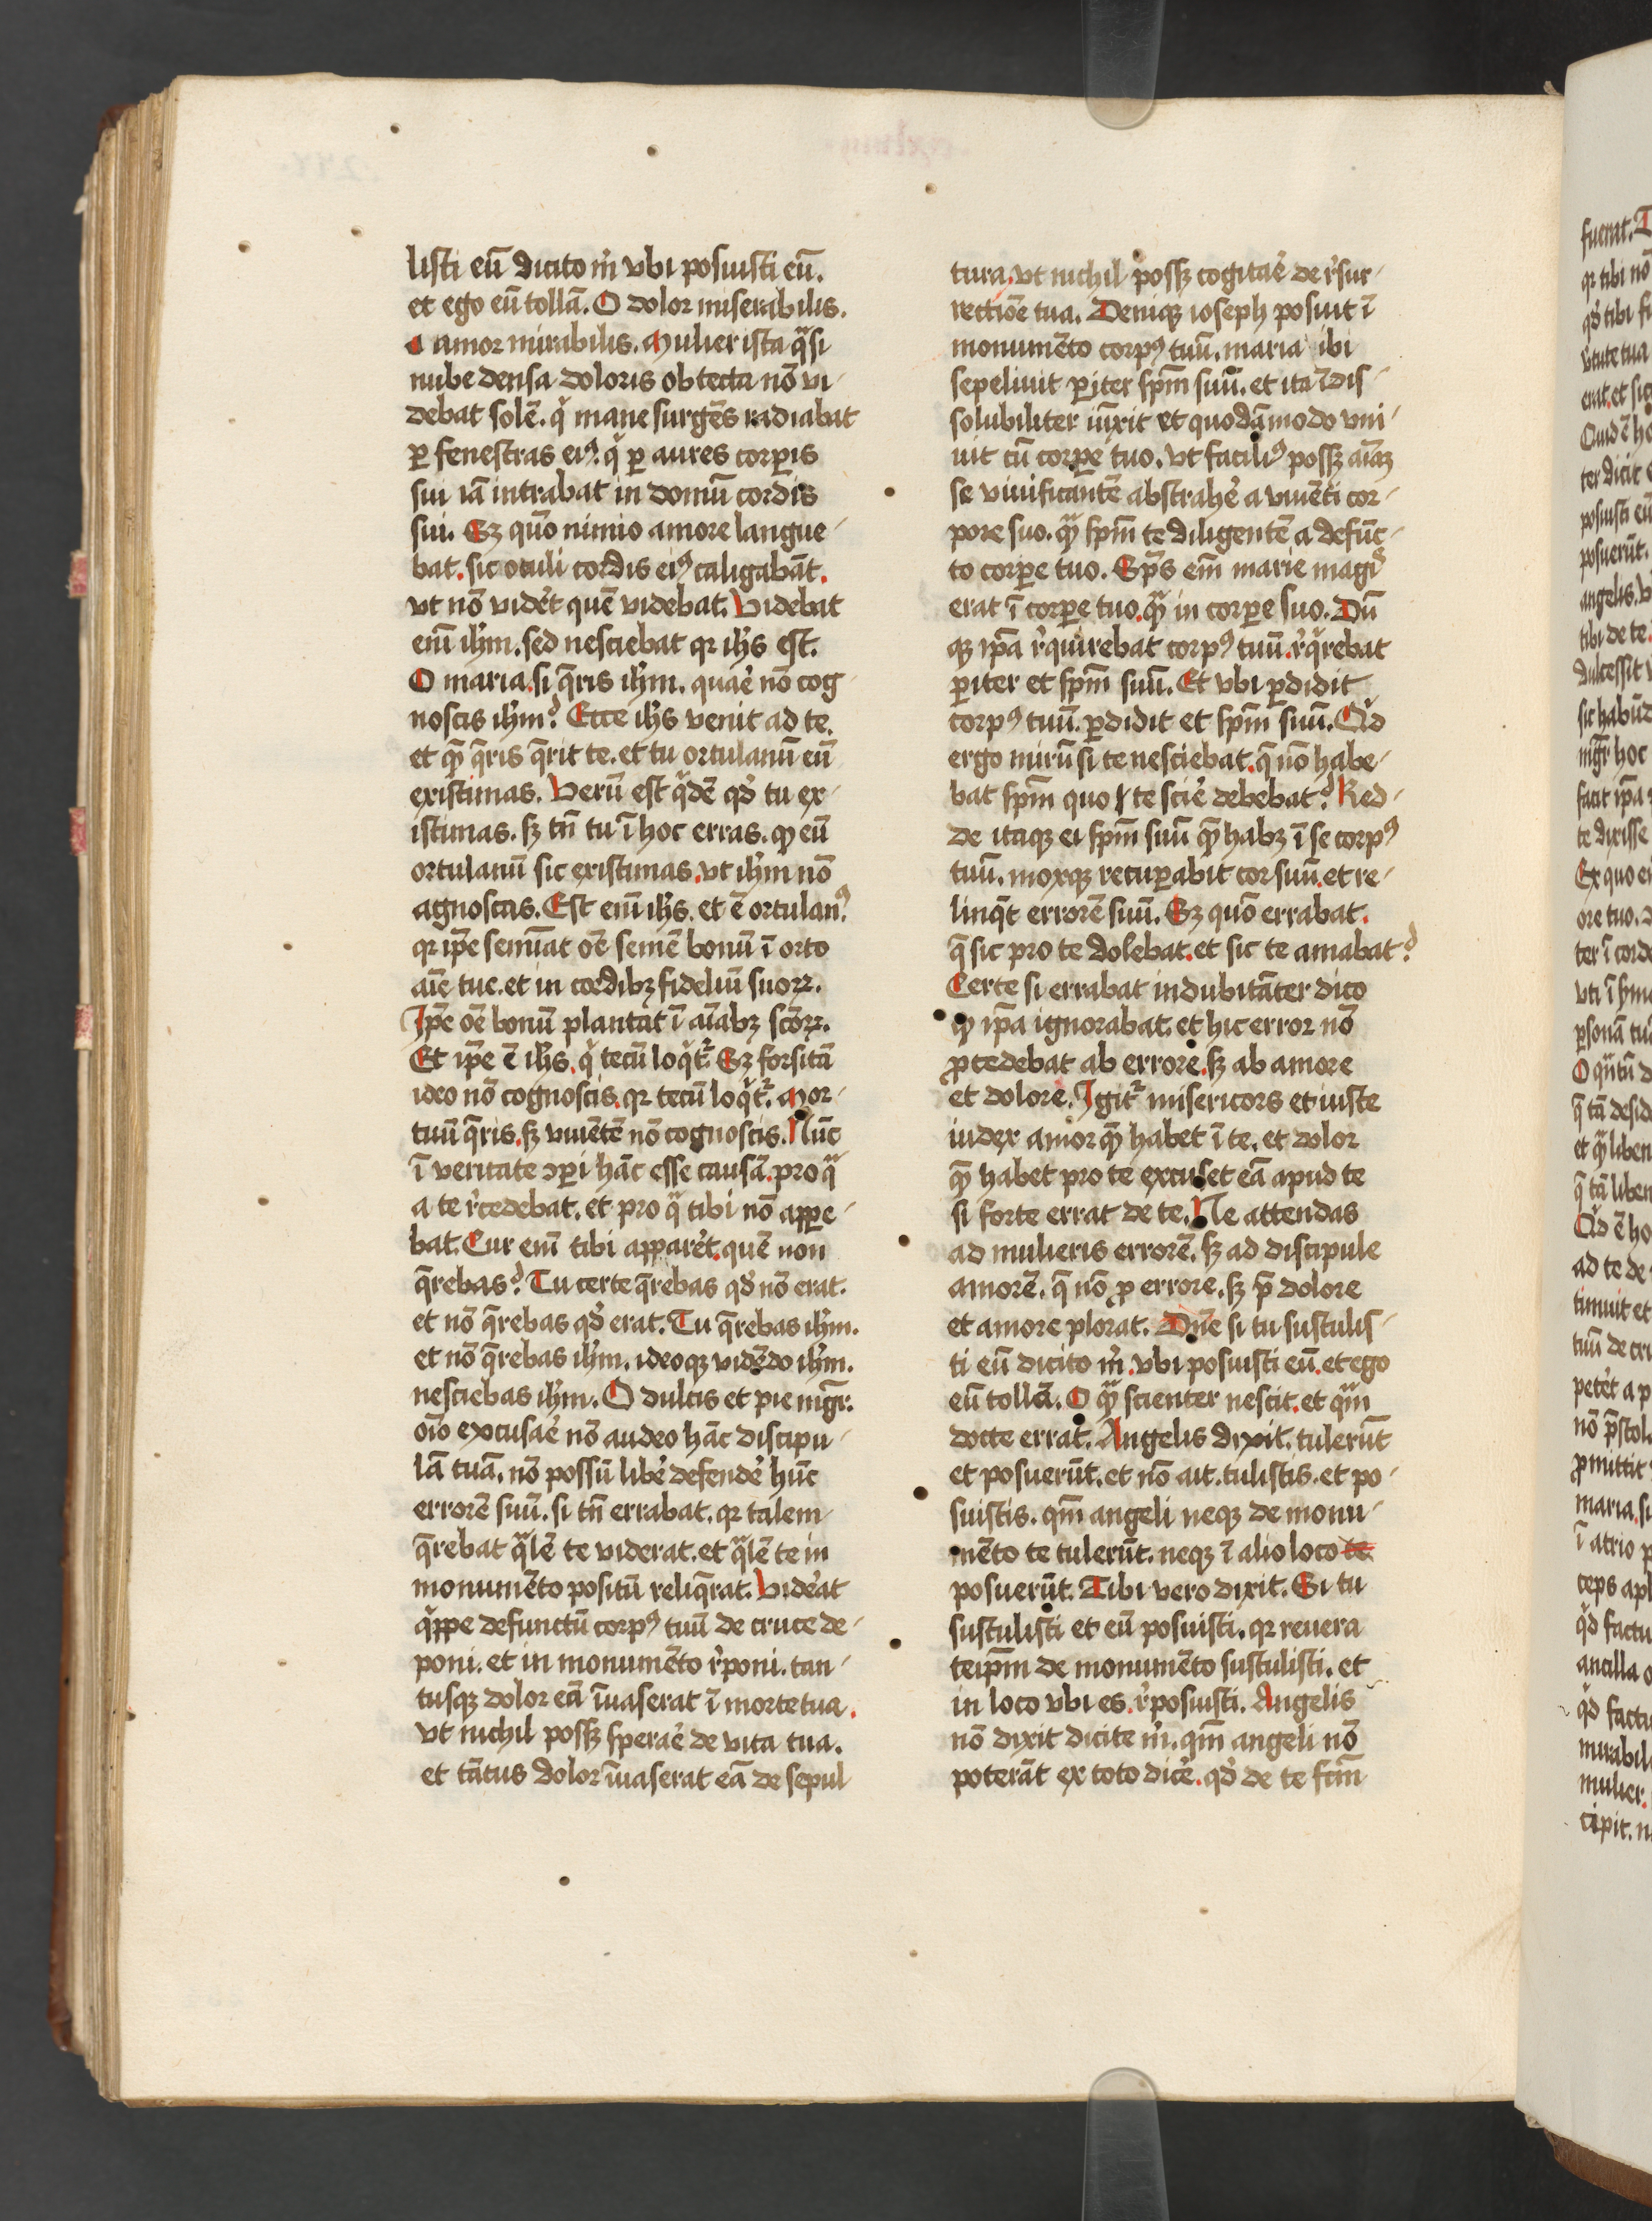 listi eū dicito m̄ vbi posuisti eū.
et ego eū tollā. O dolor miserabilis.
O amor mirabilis. Mulier ista qͣsi
nube densa doloris obtecta nō vi-
debat solē. qͥ mane surgēs radiabat
ꝑ fenestras eiꝰ. qͥ ꝑ aures corꝑis
sui iā intrabat in domū cordis
sui. Sꝫ quō nimio amore langue-
bat. sic oculi cordis eiꝰ caligabāt.
vt nō vidēt quē videbat. Videbat
eni̅ ihm̄. sed nesciebat qꝛ ihs̄ est.
O maria. si q̄ris ihm̄. quaē nō cog
noscis ihm̄? Ecce ihs̄ venit ad te.
et qē q̄ris q̄rit te. et tu ortulanū eū
existimas. Verū est qͥdē qd̄ tu ex-
istimas. sꝫ tn̄ tu ī hoc erras. ꝙ eū
ortulanū sic existimas. vt ihm̄ nō
agnoscas. Est eni̅ ihs̄. et ē ortulanꝰ.
qꝛ ip̄e semīat oē semē bonū ī orto
aīe tue. et in cordibꝫ fideliū suoꝝ.
Ip̄e oē bonū plantat ī aīabꝫ scōꝝ.
Et ip̄e ē ihs̄. qͥ tecū loqͥt᷑. Sꝫ forsitā
ideo nō cognoscis. qꝛ tecū loqͥt᷑. Mor-
tuū q̄ris. sꝫ viuētē nō cognoscis. Nūc
ī veritate ꝯꝑi hāc esse causā. pro qͣ
a te r̄cedebat. et pro qͣ tibi nō appe-
bat. Cur eni̅ tibi apparēt. quē non
q̄rebas? Tu certe q̄rebas qd̄ nō erat.
et nō q̄rebas qd̄ erat. Tu q̄rebas ihm̄.
et nō q̄rebas ihm̄. ideoqꝫ vidēdo ihm̄.
nesciebas ihm̄. O dulcis et pie mgr̄.
oīo excusaē nō audeo hāc discipu-
lā tuā. nō possū libē defendē hūc
errorē suū. si tn̄ errabat. qꝛ talem
q̄rebat qͣlē te viderat. et qͣlē te in
monumēto positū reliq̄rat. Vidēat
qͥppe defunctū corpꝰ tuū de cruce de-
poni. et in monumēto r̄poni. tan-
tusqꝫ dolor eā īuaserat ī morte tua.
vt nichil possꝫ speraē de vita tua.
et tātus dolor īuaserat eā de sepul
tura. vt nichil possꝫ cogitaē de r̄sur-
rectiōe tua. Deniqꝫ ioseph posuit ī
monumēto corpꝰ tuū. maria ibi
sepeliuit ꝑiter spm̄ suū. et ita īdis-
solubiliter iūxit et quodāmodo vni-
uit cū corꝑe tuo. vt faciliꝰ possꝫ aīaꝫ
se viuificantē abstrahē a viuēti cor-
pore suo. qͣꝫ spm̄ te diligentē a defūc-
to corꝑe tuo. Spūs em̄ marie magꝭ
erat ī corꝑe tuo. qͣꝫ in corꝑe suo. Dū
qꝫ ip̄a r̄quirebat corpꝰ tuū. r̄q̄rebat
ꝑiter et spm̄ suū. Et vbi ꝑdidit
corpꝰ tuū. ꝑdidit et spm̄ suū. Qͥd
ergo mirū si te nesciebat. q̄ nō habe-
bat spm̄ quo te sciē debebat? Red-
de itaqꝫ ei spm̄ suū qē habꝫ ī se corpꝰ
tuū. moxqꝫ recuꝑabit cor suū. et re-
linq̄t errorē suū. Sꝫ quō errabat.
q̄ sic pro te dolebat. et sic te amabat?
Certe si errabat indubitāter dico
ꝙ ip̄a ignorabat. et hic error nō
ꝓcedebat ab errore. sꝫ ab amore
et dolore. Igit᷑ misericors et iuste
iudex amor qē habet ī te. et dolor
qē habet pro te excuset eā apud te
si forte errat de te. Ne attendas
ad mulieris errorē. sꝫ ad discipule
amorē. q̄ nō ꝓ errore. sꝫ p̄ dolore
et amore plorat. Dn̄e si tu sustulis-
ti eū dicito m̄. vbi posuisti eū. et ego
eū tollā. O qͣꝫ scienter nescit. et qͣm
docte errat. Angelis dixit. tulerūt
et posuerūt. et nō ait. tulistis. et po-
suistis. qm̄ angeli neqꝫ de monu-
mēto te tulerūt. neqꝫ ī alio loco te
posuerūt. Tibi vero dixit. Si tu
sustulisti et eū posuisti. qꝛ reuera
teip̄m de monumēto sustulisti. et
in loco vbi es. r̄posuisti. Angelis
nō dixit dicite m̄. qm̄ angeli nō
poterāt ex toto dicē. qd̄ de te fcm̄